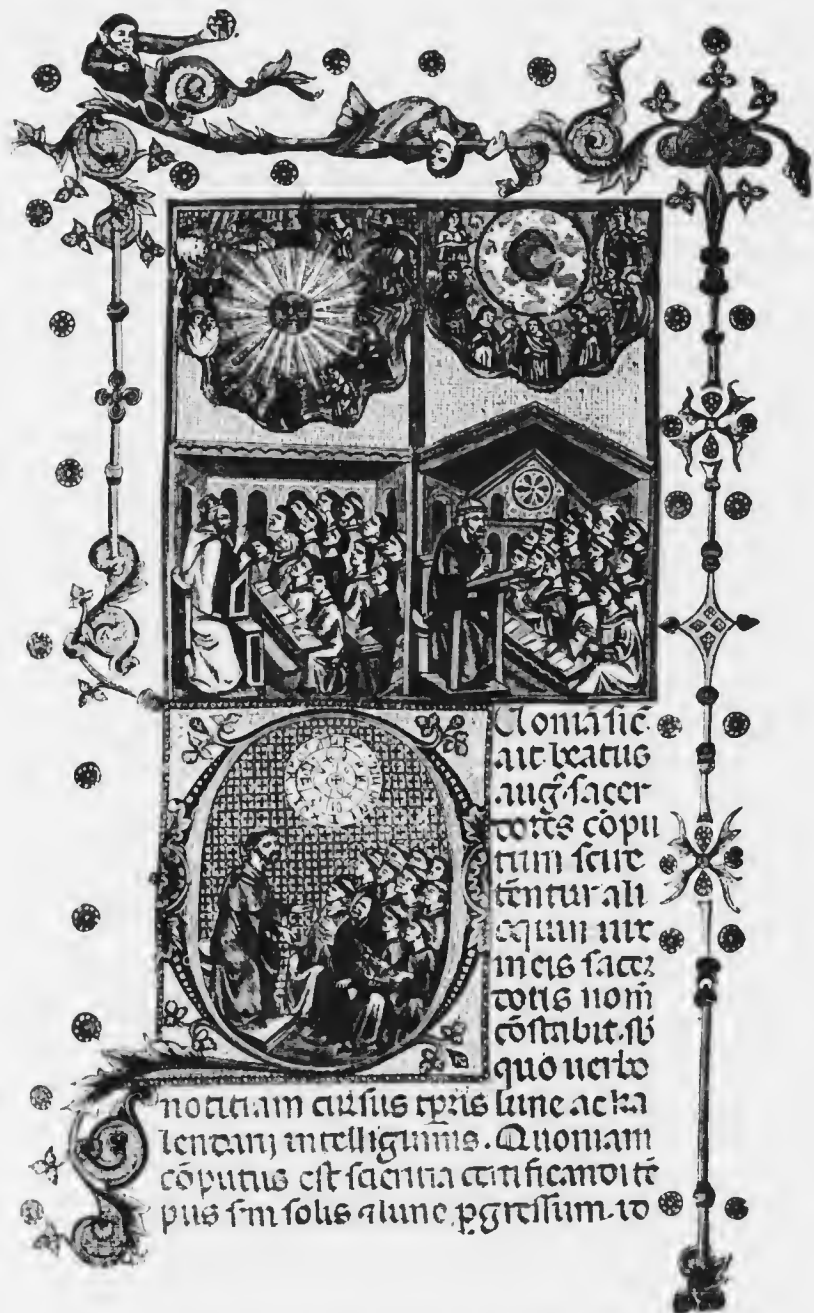 Quoniā sic̄
ait beatus
aug̃. sacer
dotes cōpu
tum scire
tēntur ali
oquin uix
in eis sacer
dotis nom̄
cōstabit. sb̄
quo uerbo
notitiam cursus tp̄ris lune ac ka
lendarij intelligimus. Quoniam
cōputus est sacntia certificandi tē
pus sm̄ solis ⁊ lune ꝓgressum. id